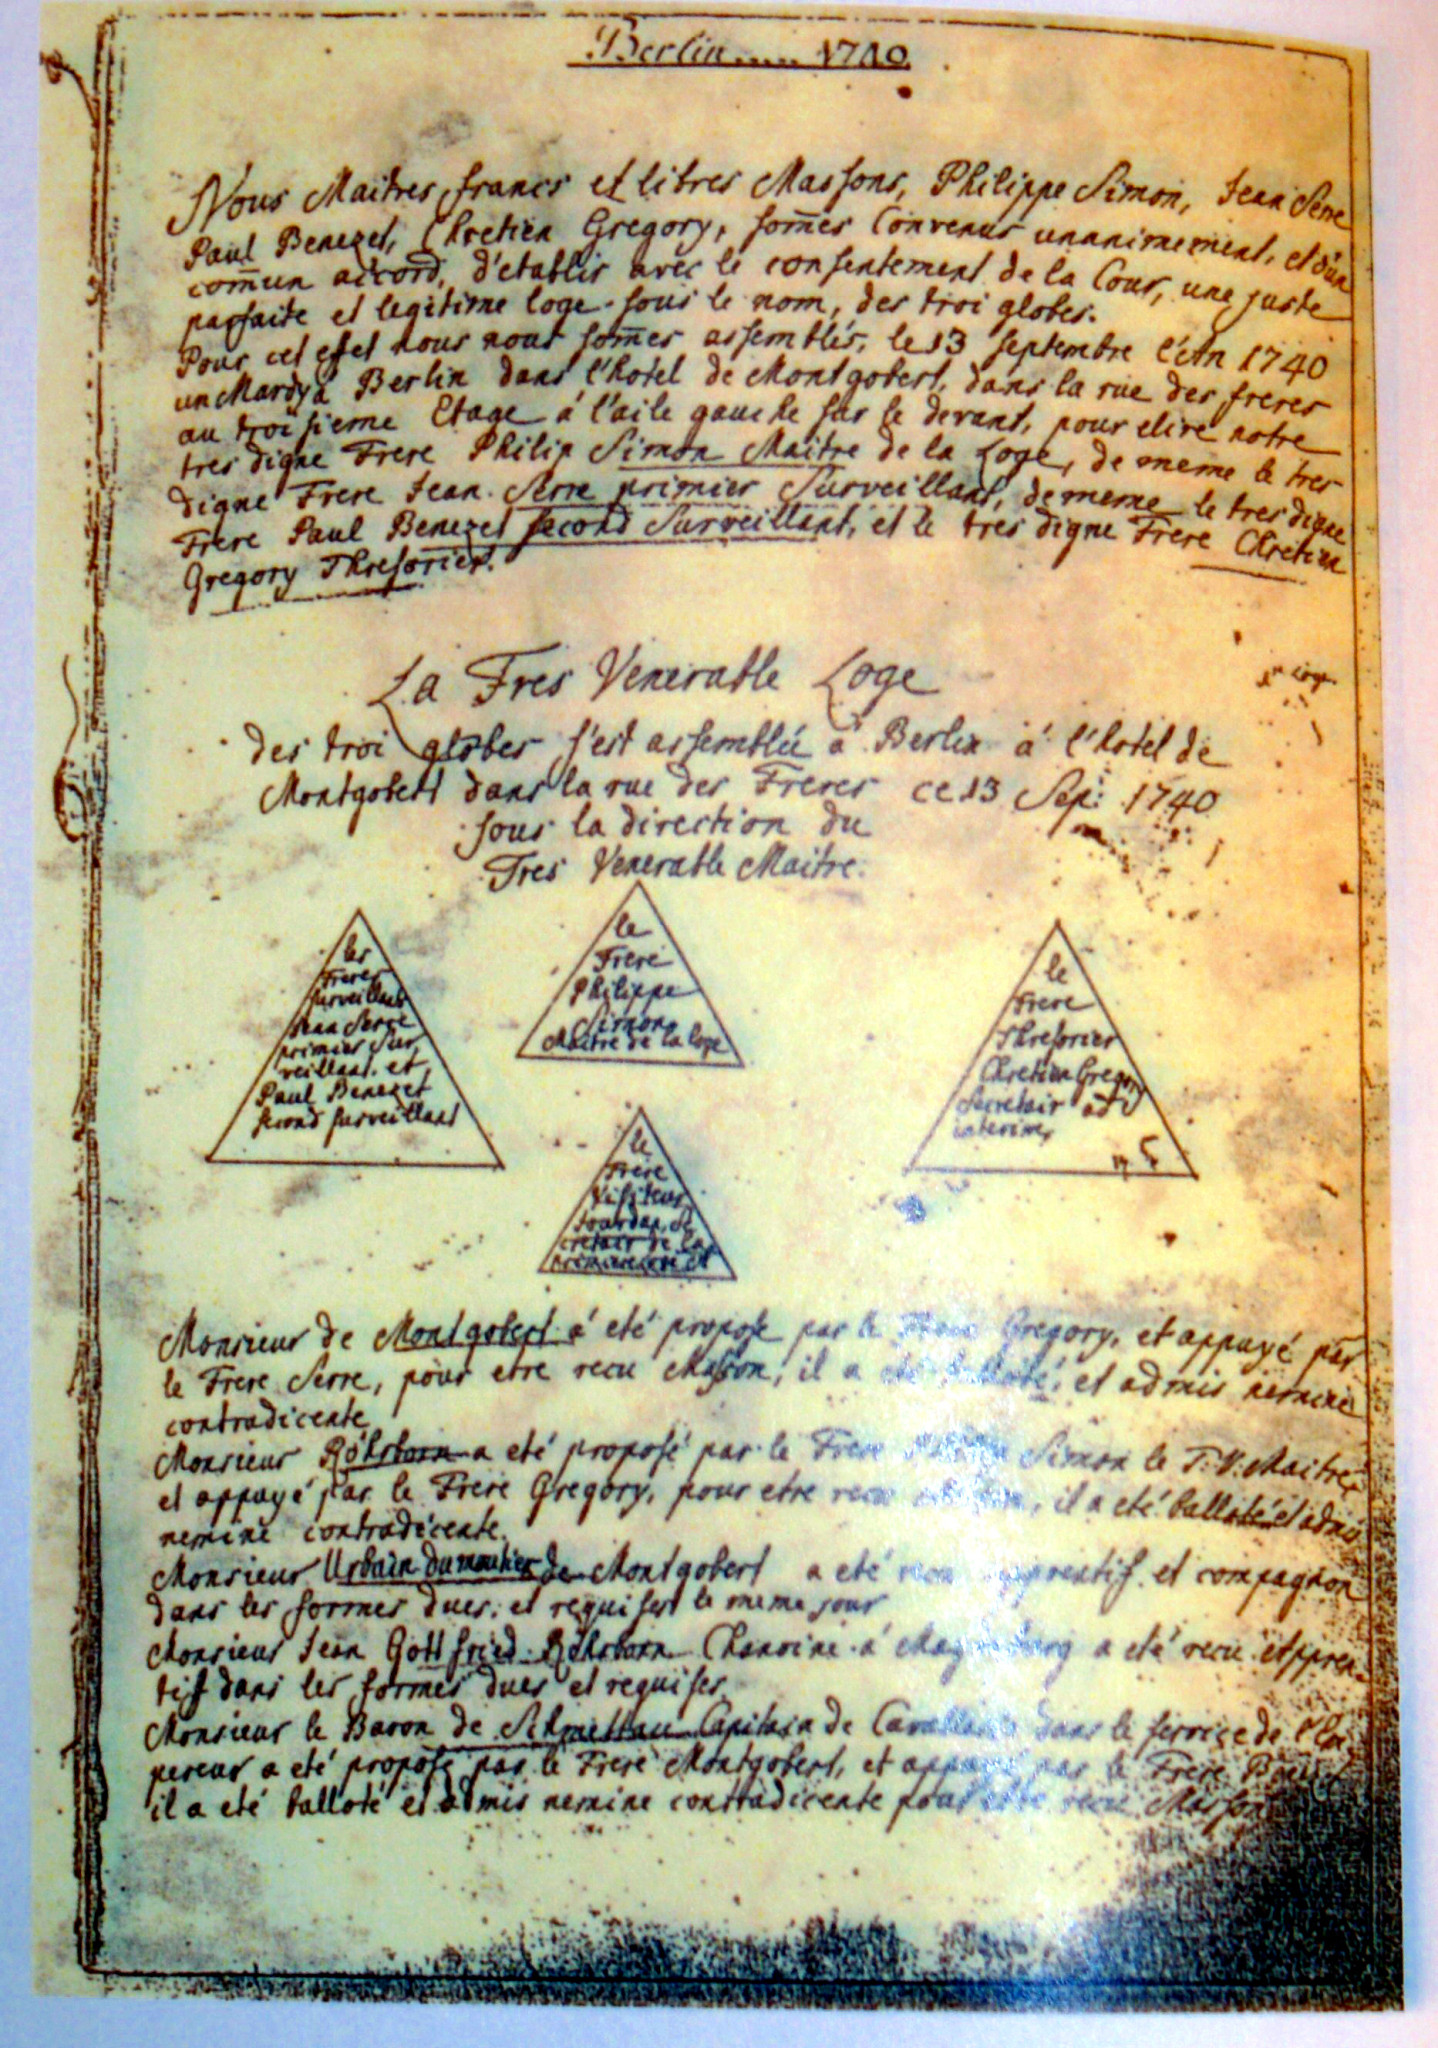 Berlin..... 1740.
Nous Maitres francs et libres Massons, Philippe Simon, Jean Serre
Paul Benezet, Chretien Gregory, som̅es Convenus unanimement, et d'un
com̅un accord, d'etablir avec le consentement de la Cour, une juste
parfaite et legitime loge sous le nom, des troi globes.
Pour cet effet nous nous som̅es assemblés, le 13 septembre l'An 1740
un Mardy à Berlin dans l'hotel de Montgobert, dans la rue des freres
au troisieme Etage á l'aile gauche sur le devant, pour elire notre
tres digne Frere Philip Simon Maitre de la Loge, de meme le tres
digne Frere Jean Serre primier Surveillant, de meme le tres digne
Frere Paul Benezet second Surveillant, et le tres digne Frere Chretien
Gregory Thresorier.
La Tres Venerable Loge
des troi globes s'est assemblée á Berlin á l'hotel de
Montgobert dans la rue des Freres ce 13 Sep: 1740
sous la direction du
Tres Venerable Maitre.
les
Freres
surveillants
Jean Serre
primier Sur
veillant et
Paul Benezet
second surveillant
le
Frere
Philippe
Simon
Maitre de la loge
le
Frere
Thresorier
Chretien Gregory
Secretair ad
interim,
le
Frere
Visiteur
Jourdan, Se
cretair de la
Monsieur de Montgobert á eté propose par le Frere Gregory, et appuyé par
le Frere Serre, pour etre recu Masson, il a eté balloté, et admis nemine
contradicente
Monsieur Röhsborn a eté proposé par le Frere Simon le T. V. Maitre,
et appuyé par le Frere Gregory, pour etre recu, il a eté balloté et admis
nemine contradicente.
Monsieur Urbain Dumoutier de Montgobert a eté recu apprentif et compagnon
dans les formes dues et requises le meme jour
Monsieur Jean Gottfried Röhsborn Chanoine á Magdebourg a eté recu Appren-
tif dans les formes dues et requises
Monsieur le Baron de Schmettau Capitain de Cavallerie dans le service de l'Em
pereur a eté propose par le Frere Montgobert, et appuyé par le Frere
il a eté balloté et admis nemine contradicente pour etre recu Masson